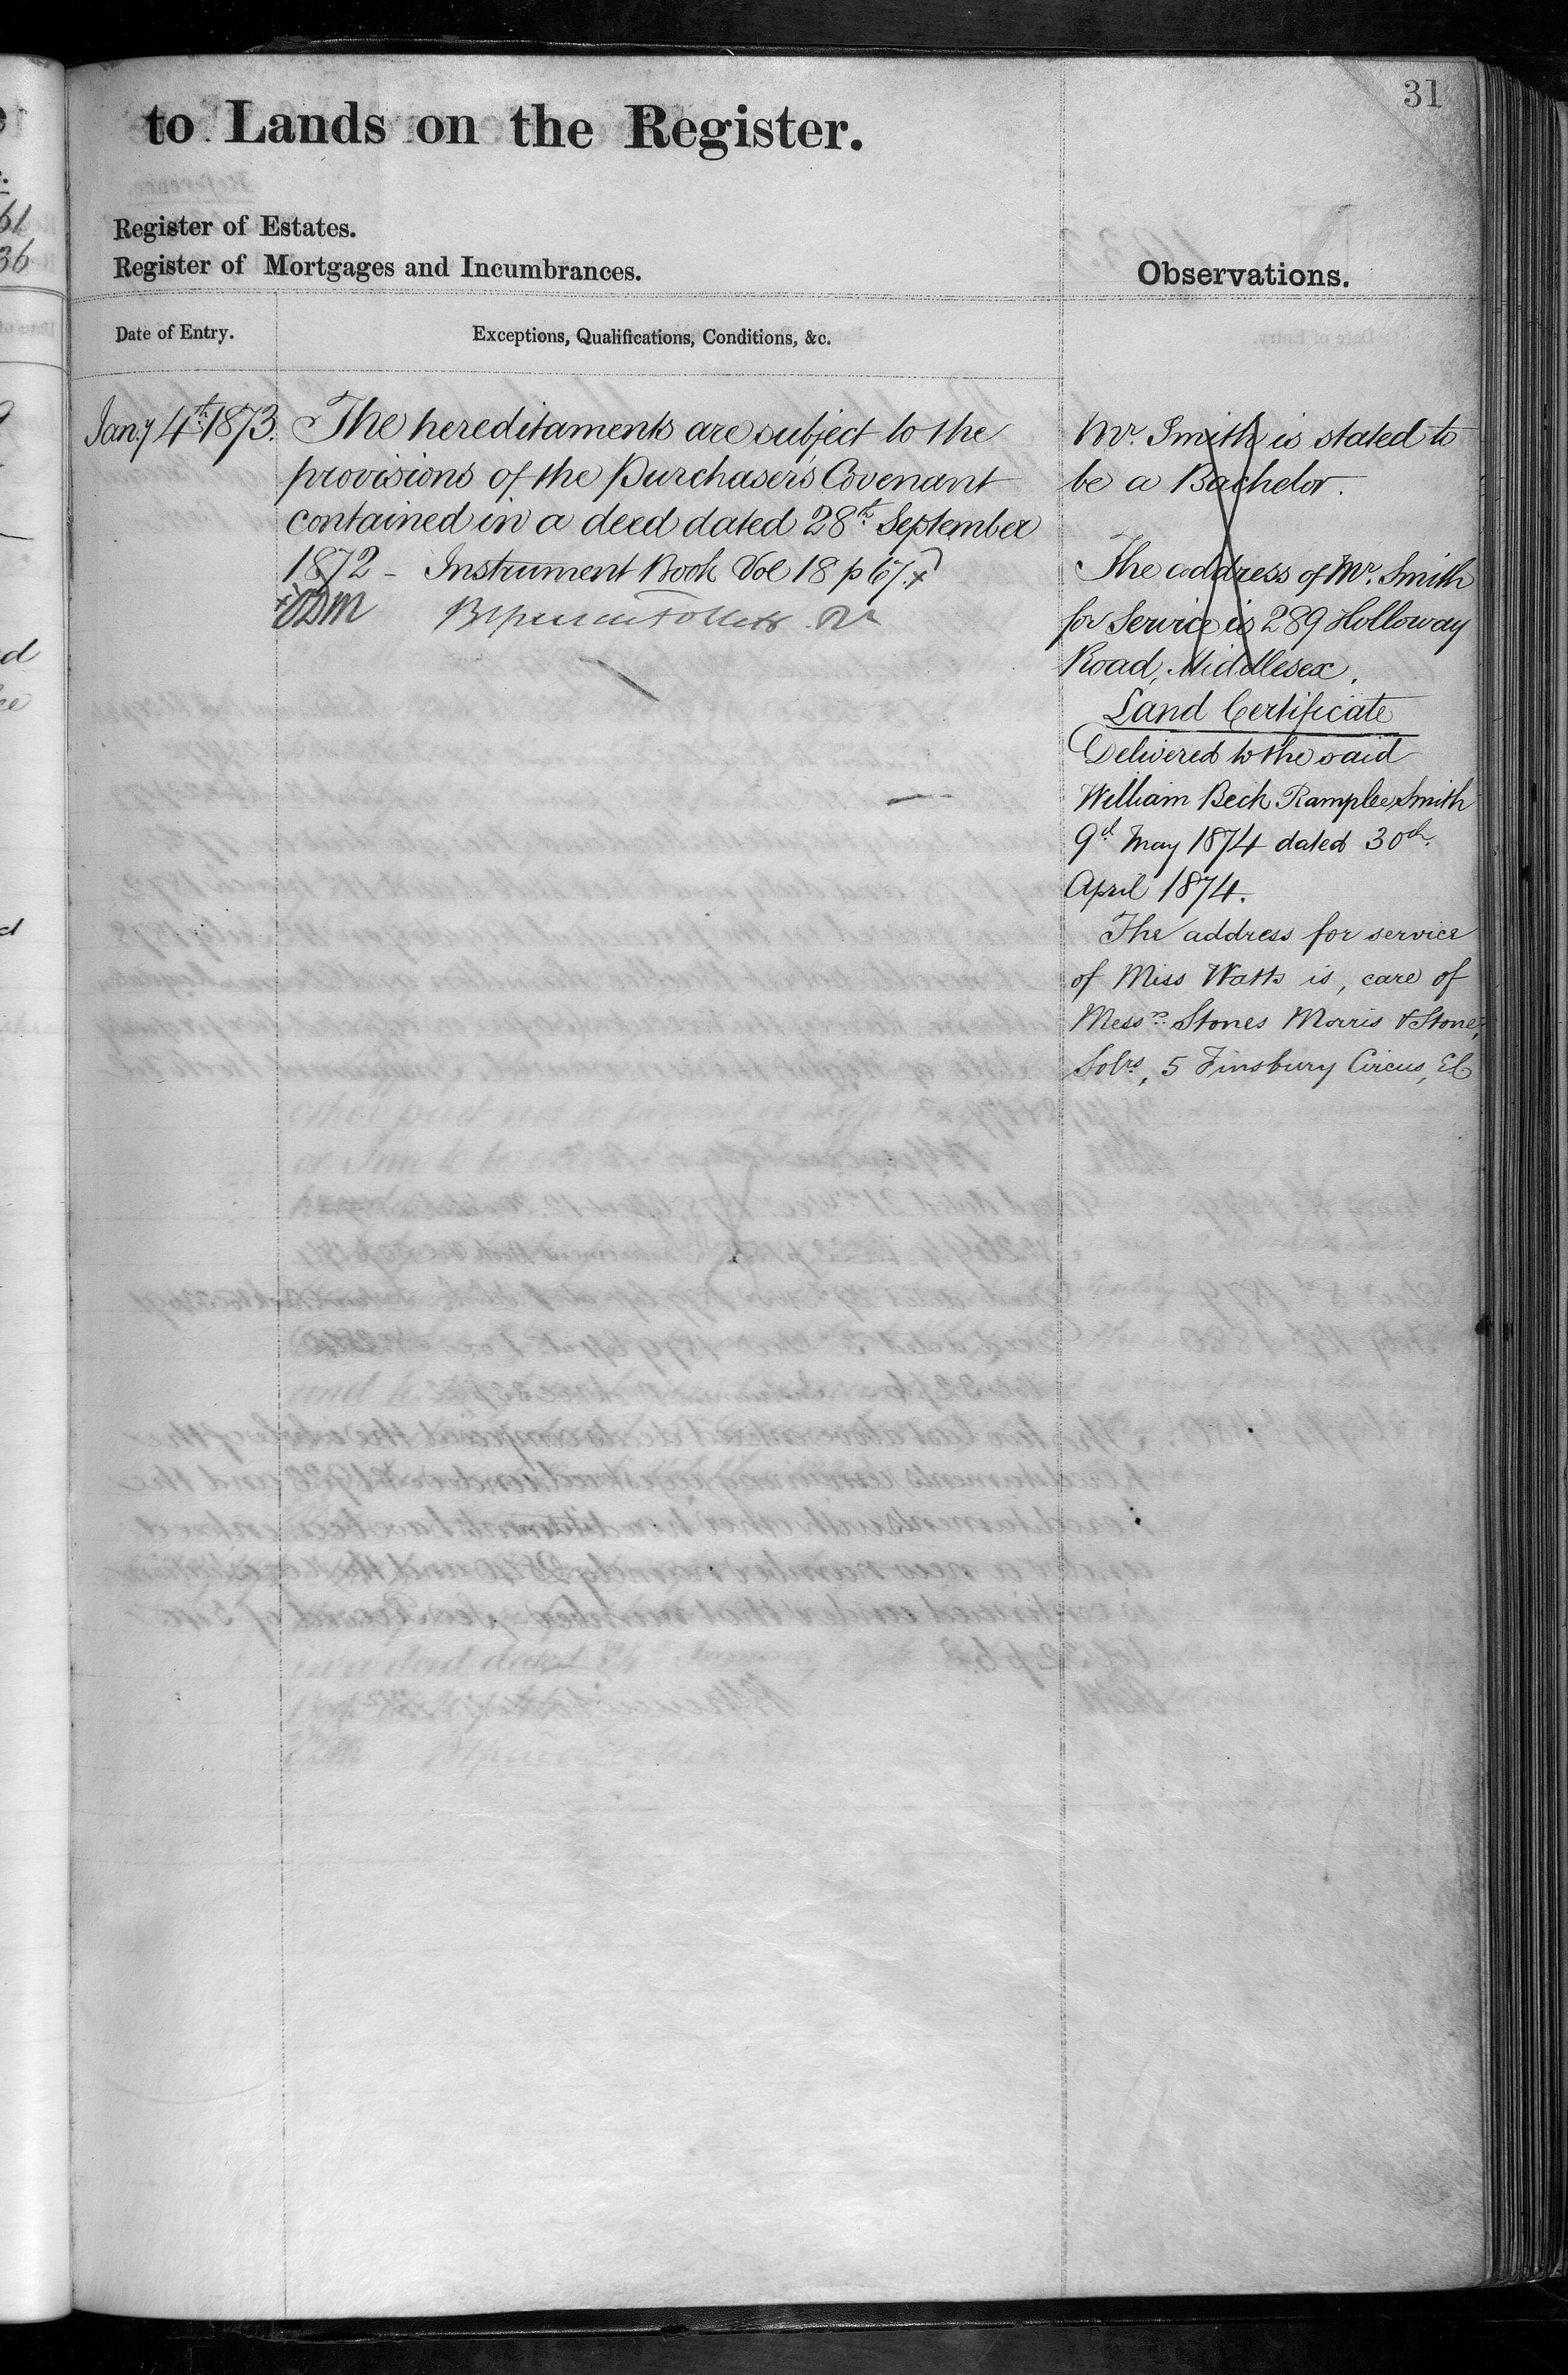 31
to Lands on the Register.
Register of Estates.
Register of Mortgages and Incumbrances.
Observations.
Date of Entry.
Exceptions, Qualifications, Conditions, &c.
Jan.y 4th 1873.
The hereditaments are subject to the
provisions of the Purchaser's Covenant
contained in a deed dated 28th September
1872 - Instrument Book Vol 18 p 67.
Mr. Smith is stated to
be a Bachelor.
The address of Mr. Smith
for Service is 289 Holloway
Road, Middlesex.
Land Certificate
Delivered to the said
William Beck Ramplee Smith
9th May 1874 dated 30th
April 1874.
The address for service
of Miss Watts is, care of
Messrs. Stones Morris & Stone,
Solrs, 5 Finsbury Circus, EC